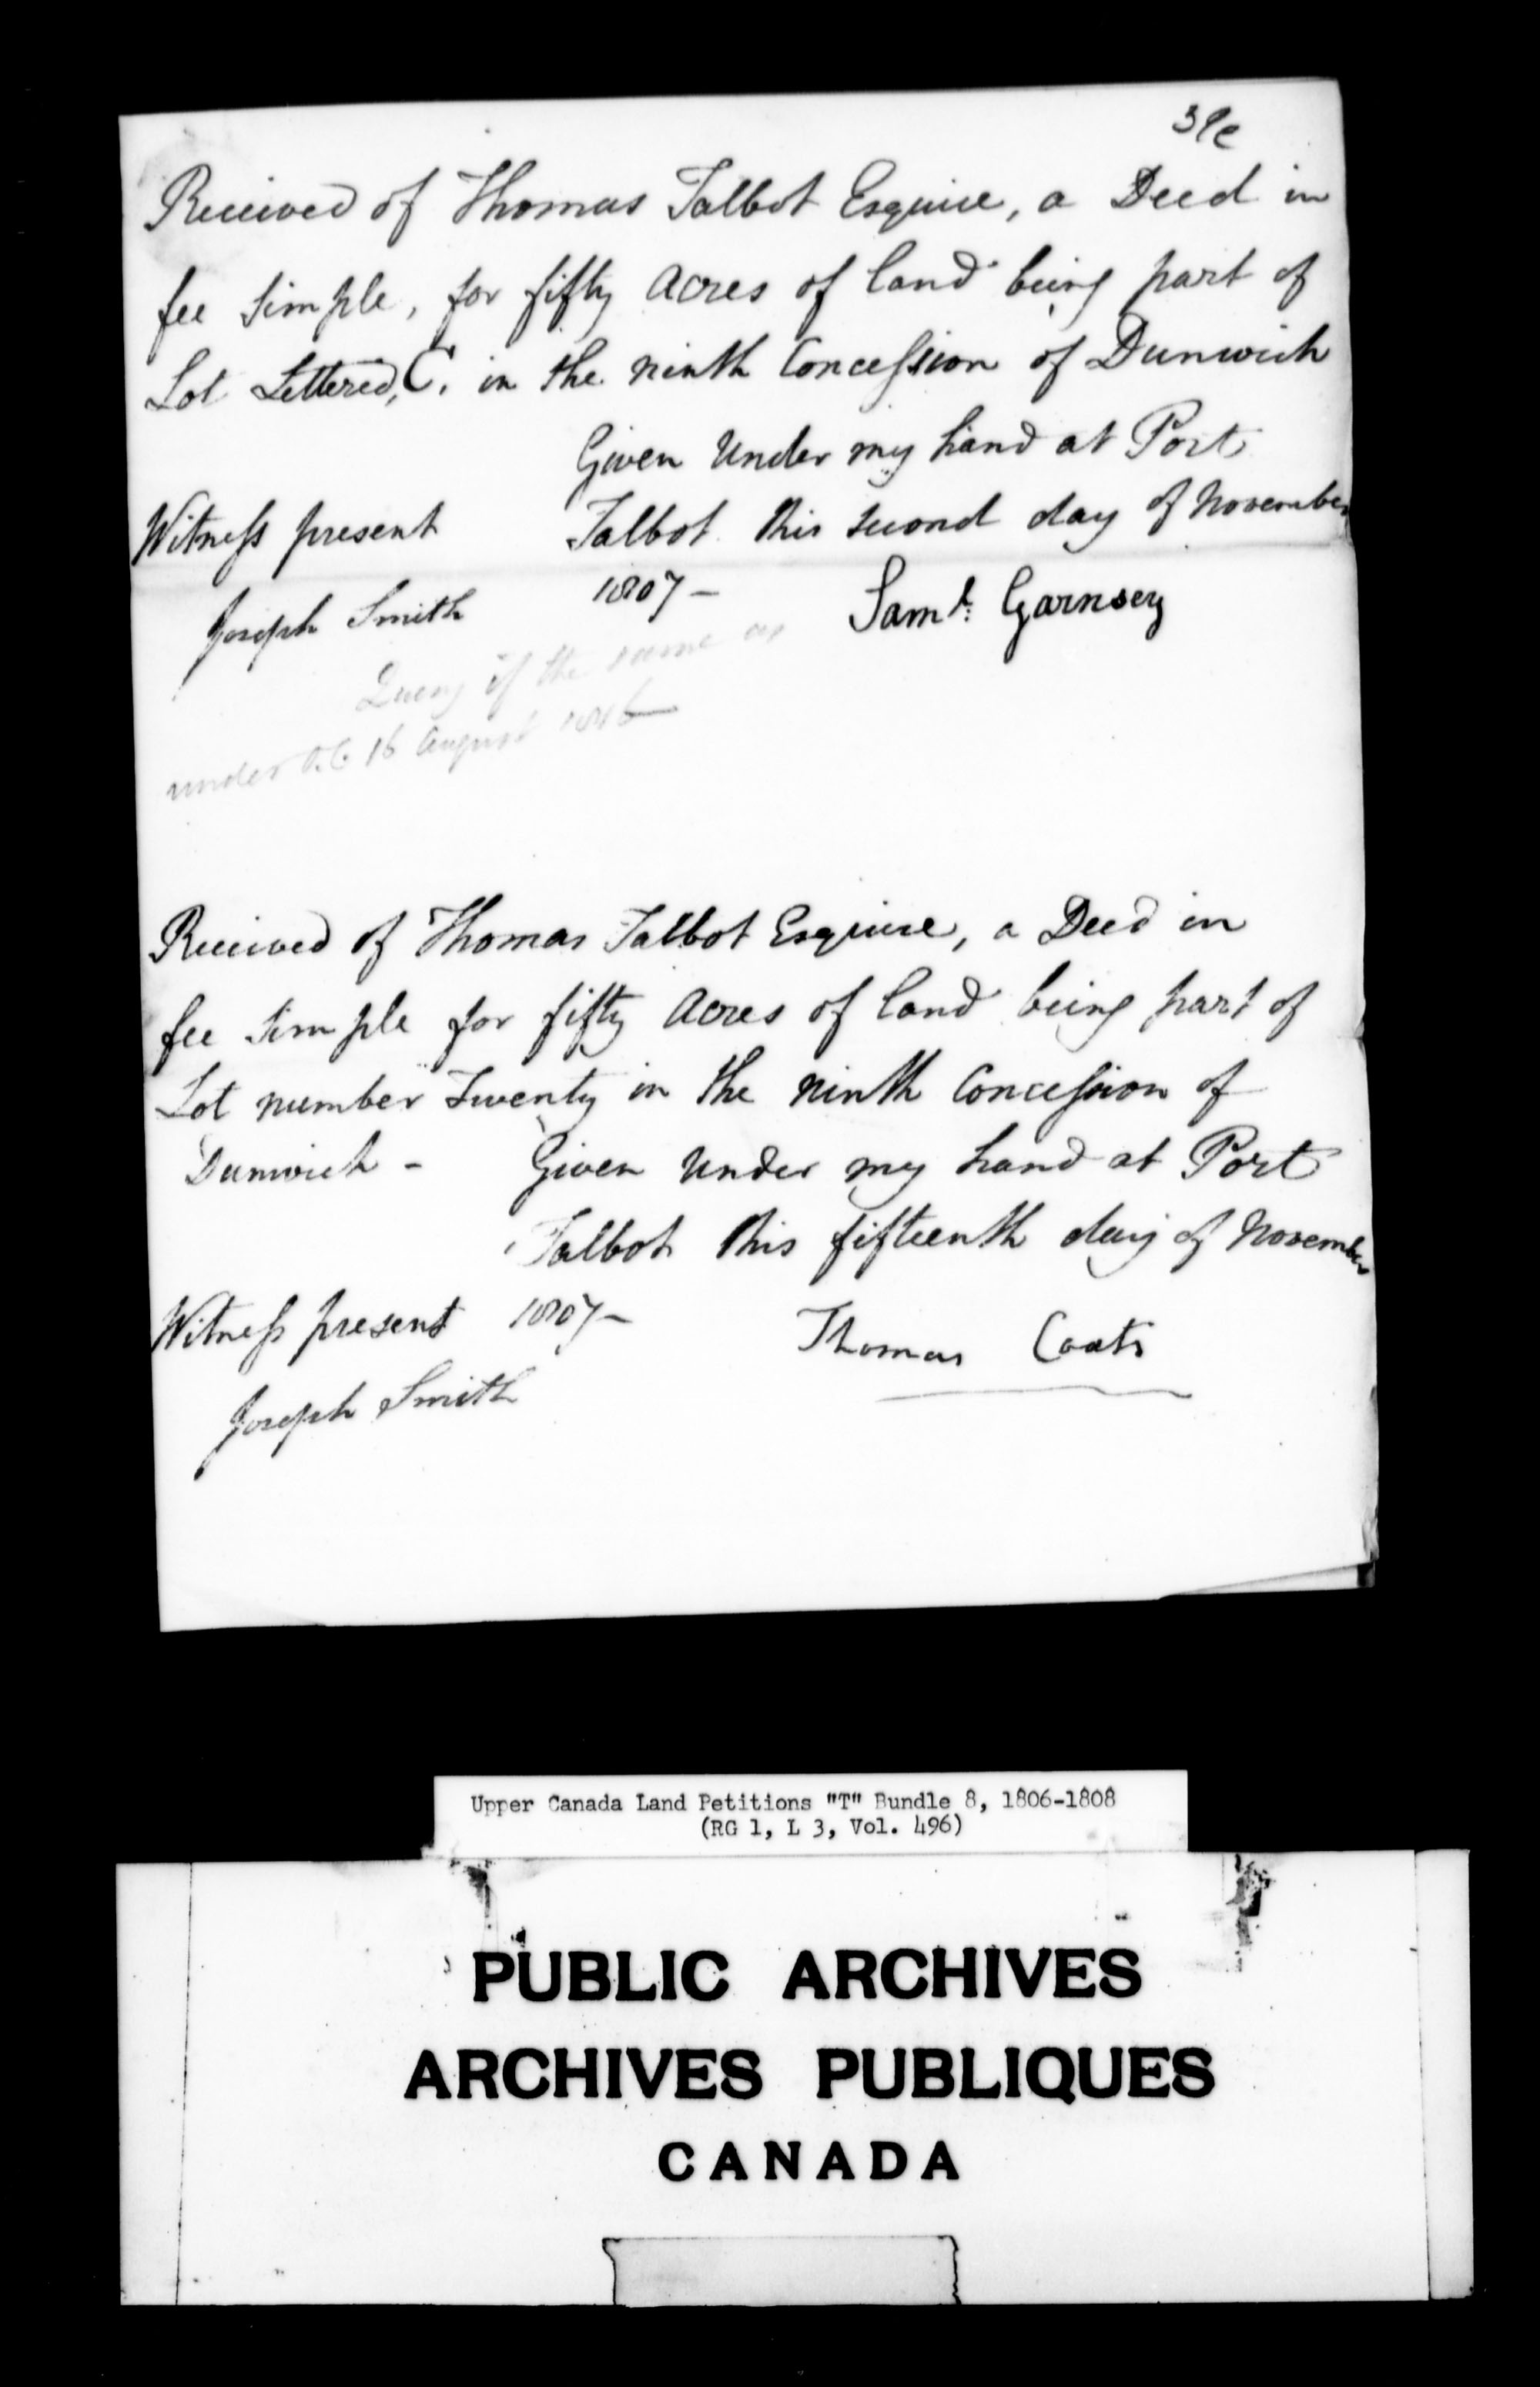 39e
Received of Thomas Talbot Esquire, a Deed in
fee simple, for fifty Acres of land being part of
Lot Lettered, C. in the ninth Concession of Dunwich
Given Under my hand at Port
Witness present Talbot this second day of November
Joseph Smith 1807 – Saml. Garnsey
Query if the same as
under O.C 16 August 1816
Received of Thomas Talbot Esquire, a Deed in
fee simple for fifty Acres of land being part of
Lot number Twenty in the ninth Concession of
Dunwich - Given Under my hand at Port
Talbot this fifteenth day of November
Witness present 1807 – Thomas Coats
Joseph Smith
Upper Canada Land Petitions "T" Bundle 8, 1806-1808
(RG 1, L 3, Vol. 496)
PUBLIC ARCHIVES
ARCHIVES PUBLIQUES
CANADA